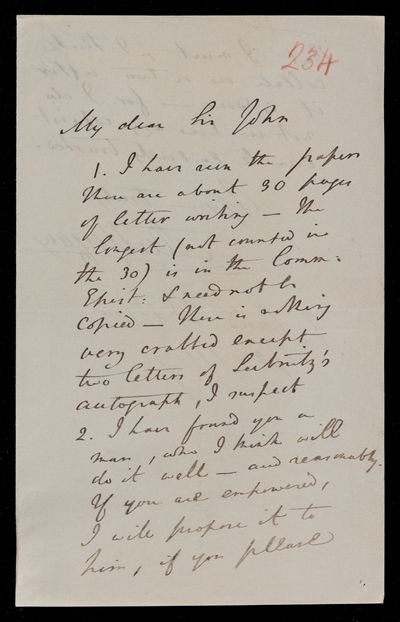 234
My dear Sir John
1. I have seen the papers
There are about 30 pages
of letter writing — The
longest (not counted in
the 30) is in the Comm:
Epist: & need not be
copied — There is nothing
very crabbed except
two letters of Leibnitz's
autograph, I suspect
2. I have found you a
man, who I think will
do it well — and reasonably.
If you are empowered,
I will propose it to
him, if you please